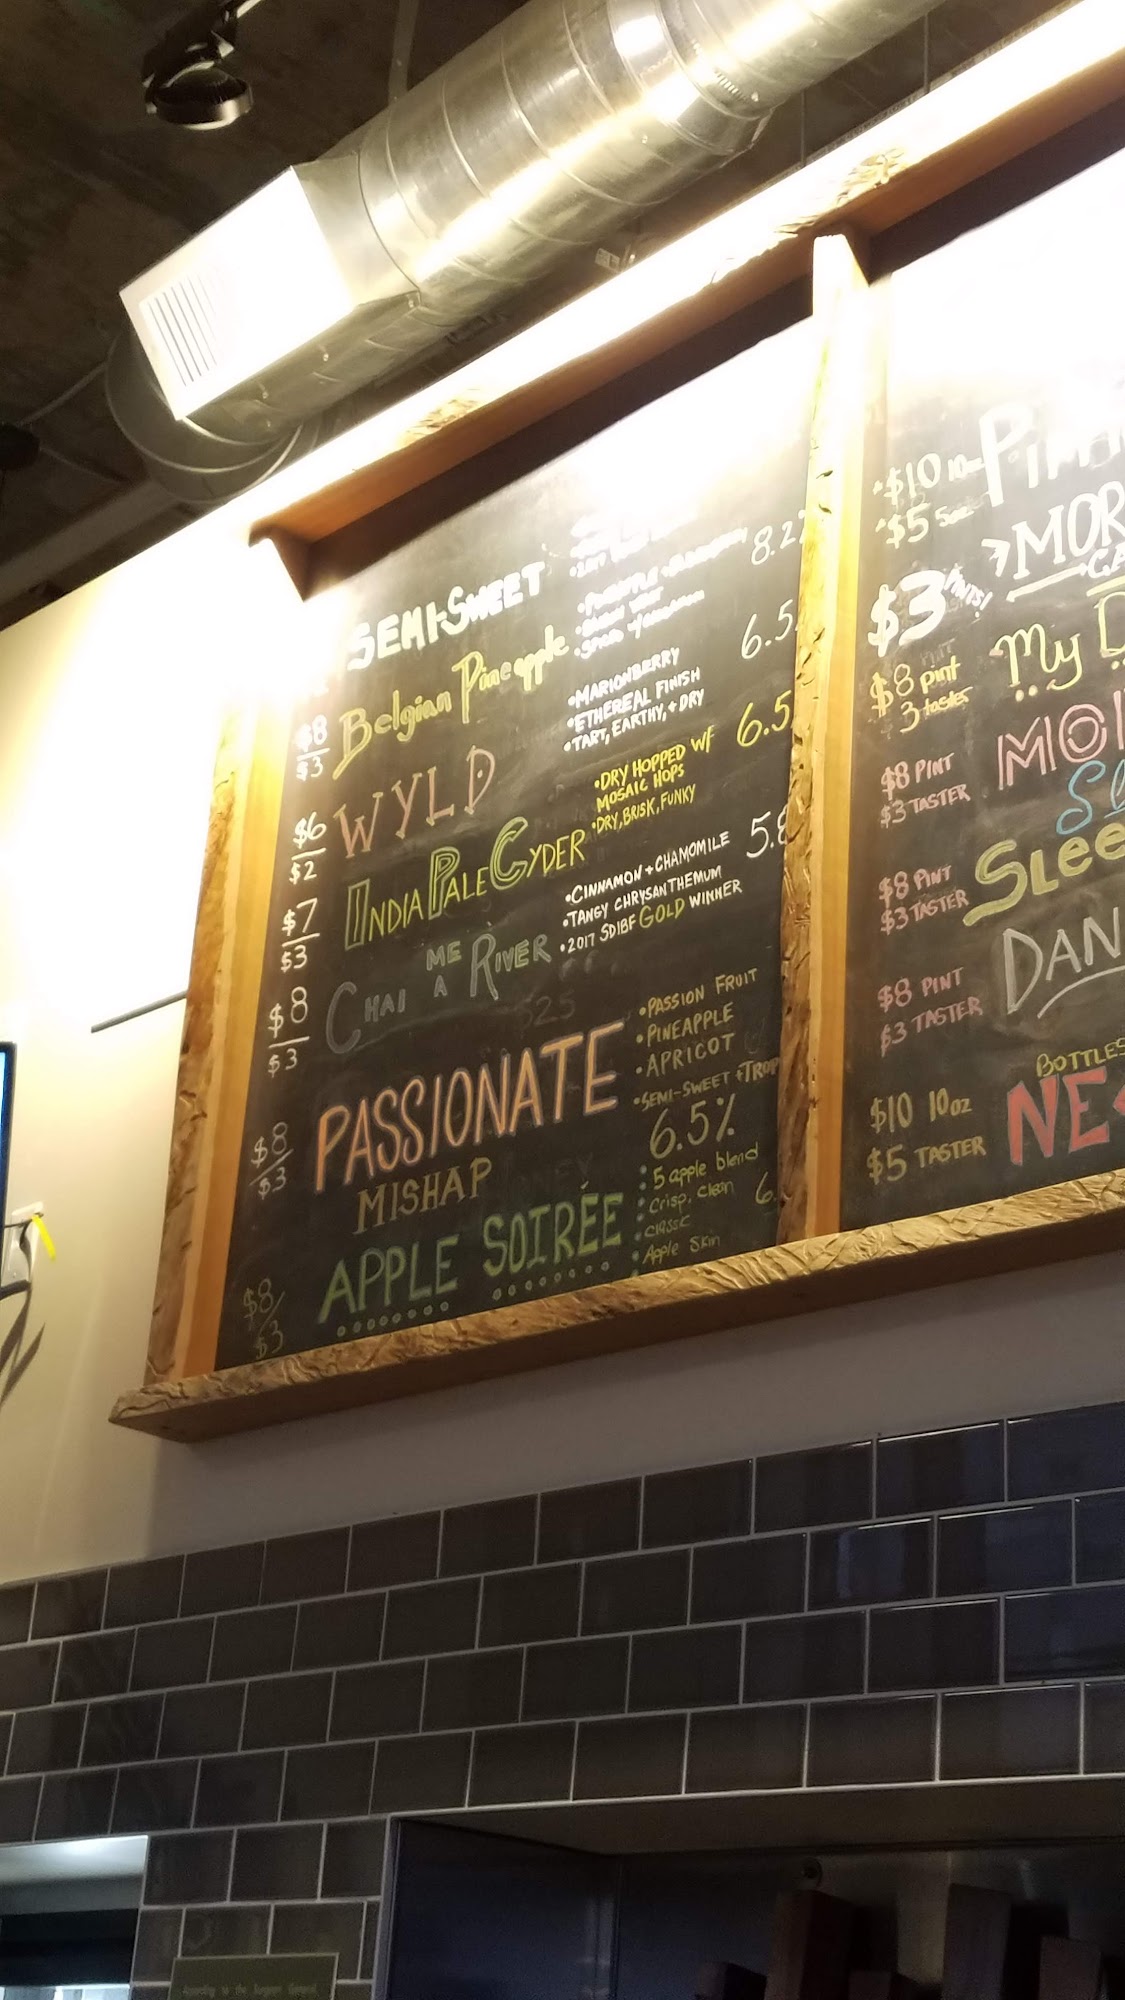 SEMI-SWEET
$8
$3
Belgian Pineapple
8.2
$6
$2
WYLD
•MARIONBERRY
•ETHEREAL FINISH
•TART, EARTHY, + DRY
6.5
$7
$3
INDIA PALE CYDER
•DRY HOPPED W/
MOSAIC HOPS
•DRY, BRISK, FUNKY
6.5
$8
$3
CHAI ME A RIVER
•CINNAMON + CHAMOMILE
•TANGY CHRYSANTHEMUM
•2017 SDIBF GOLD WINNER
5.8
$25
$8
$3
PASSIONATE
MISHAP
•PASSION FRUIT
•PINEAPPLE
•APRICOT
•SEMI-SWEET + TROP
6.5%
$8
$3
APPLE SOIRÉE
5 apple blend
Crisp, clean
classic
Apple Skin
6.
$10 10oz
$5 5oz
MOR
$3 PINTS!
$8 pint
3 taster
My D
$8 PINT
$3 TASTER
MO
$8 PINT
$3 TASTER
Slee
$8 PINT
$3 TASTER
DAN
BOTTLES
$10 10oz
$5 TASTER
NE
According to the Surgeon General,